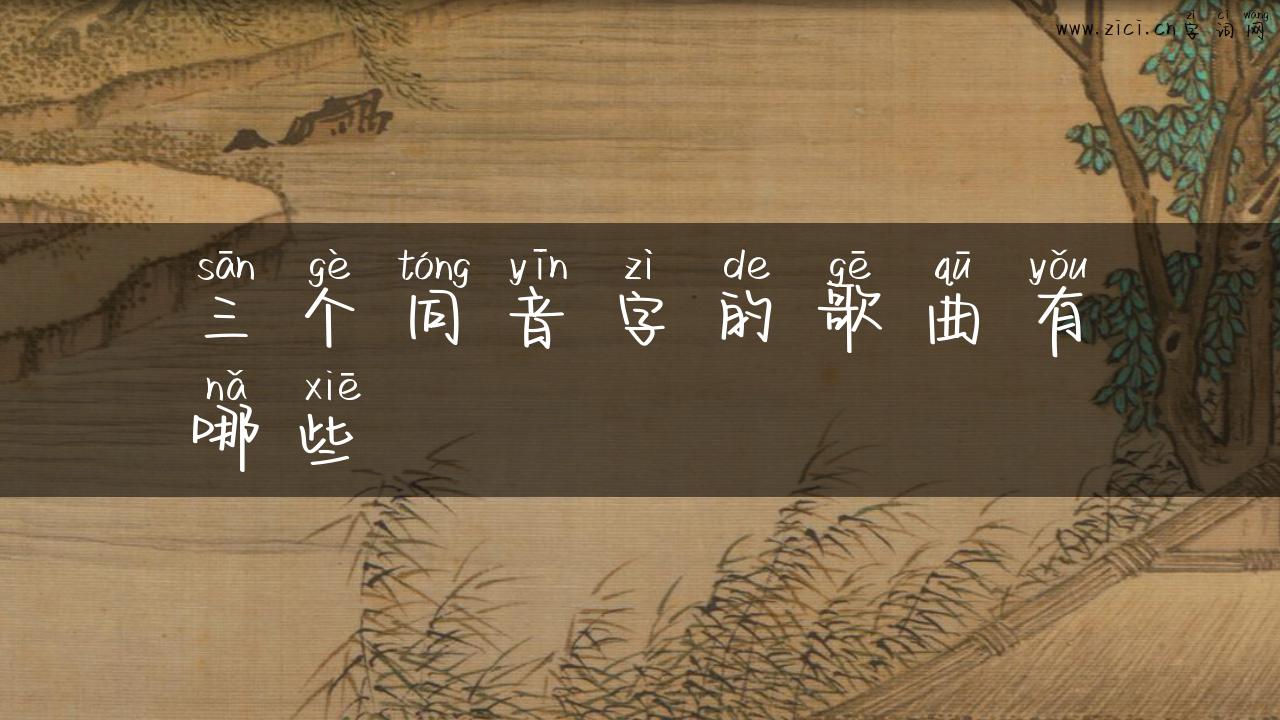 zì cí wǎng
www.zici.cn字词网
sān gè tóng yīn zì de gē qū yǒu
三个同音字的歌曲有
nǎ xiē
哪些